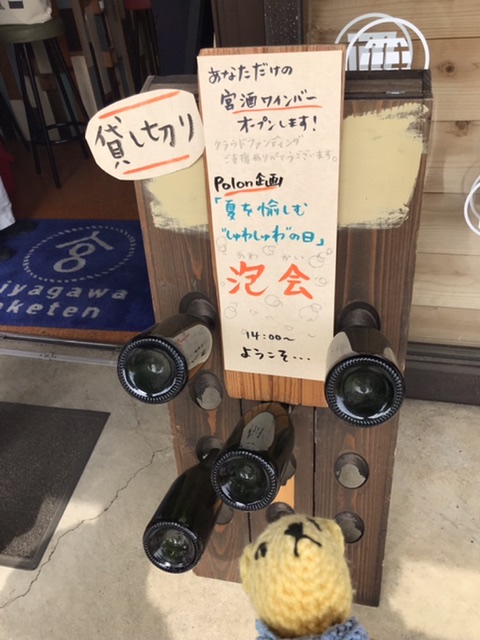 貸し切り
あなただけの
宮酒ワインバー
オープンします！
クラウドファンディング
ご支援ありがとうございます。
Polon企画
「夏を愉しむ
"しゅわしゅわ"の日」
あわ かい
泡会
14:00～
ようこそ...
iyagawa
aketen